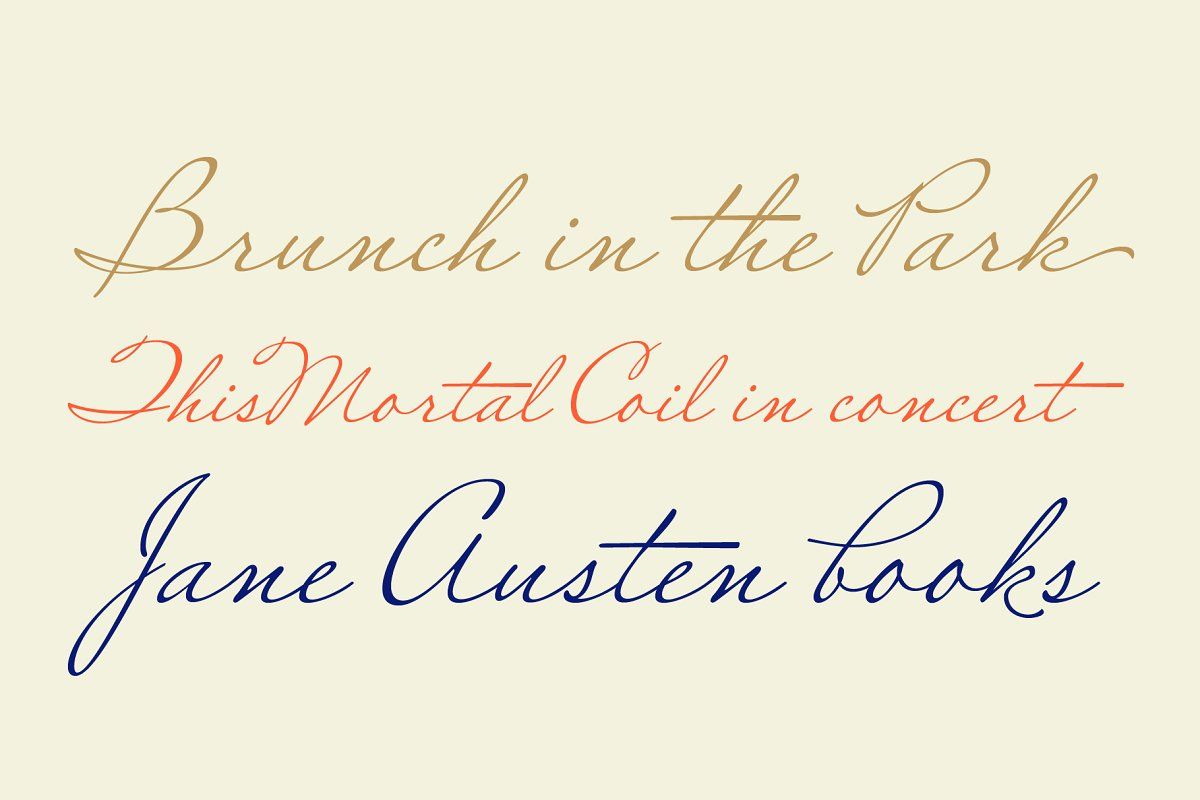 Brunch in the Park
This Mortal Coil in concert
Jane Austen books